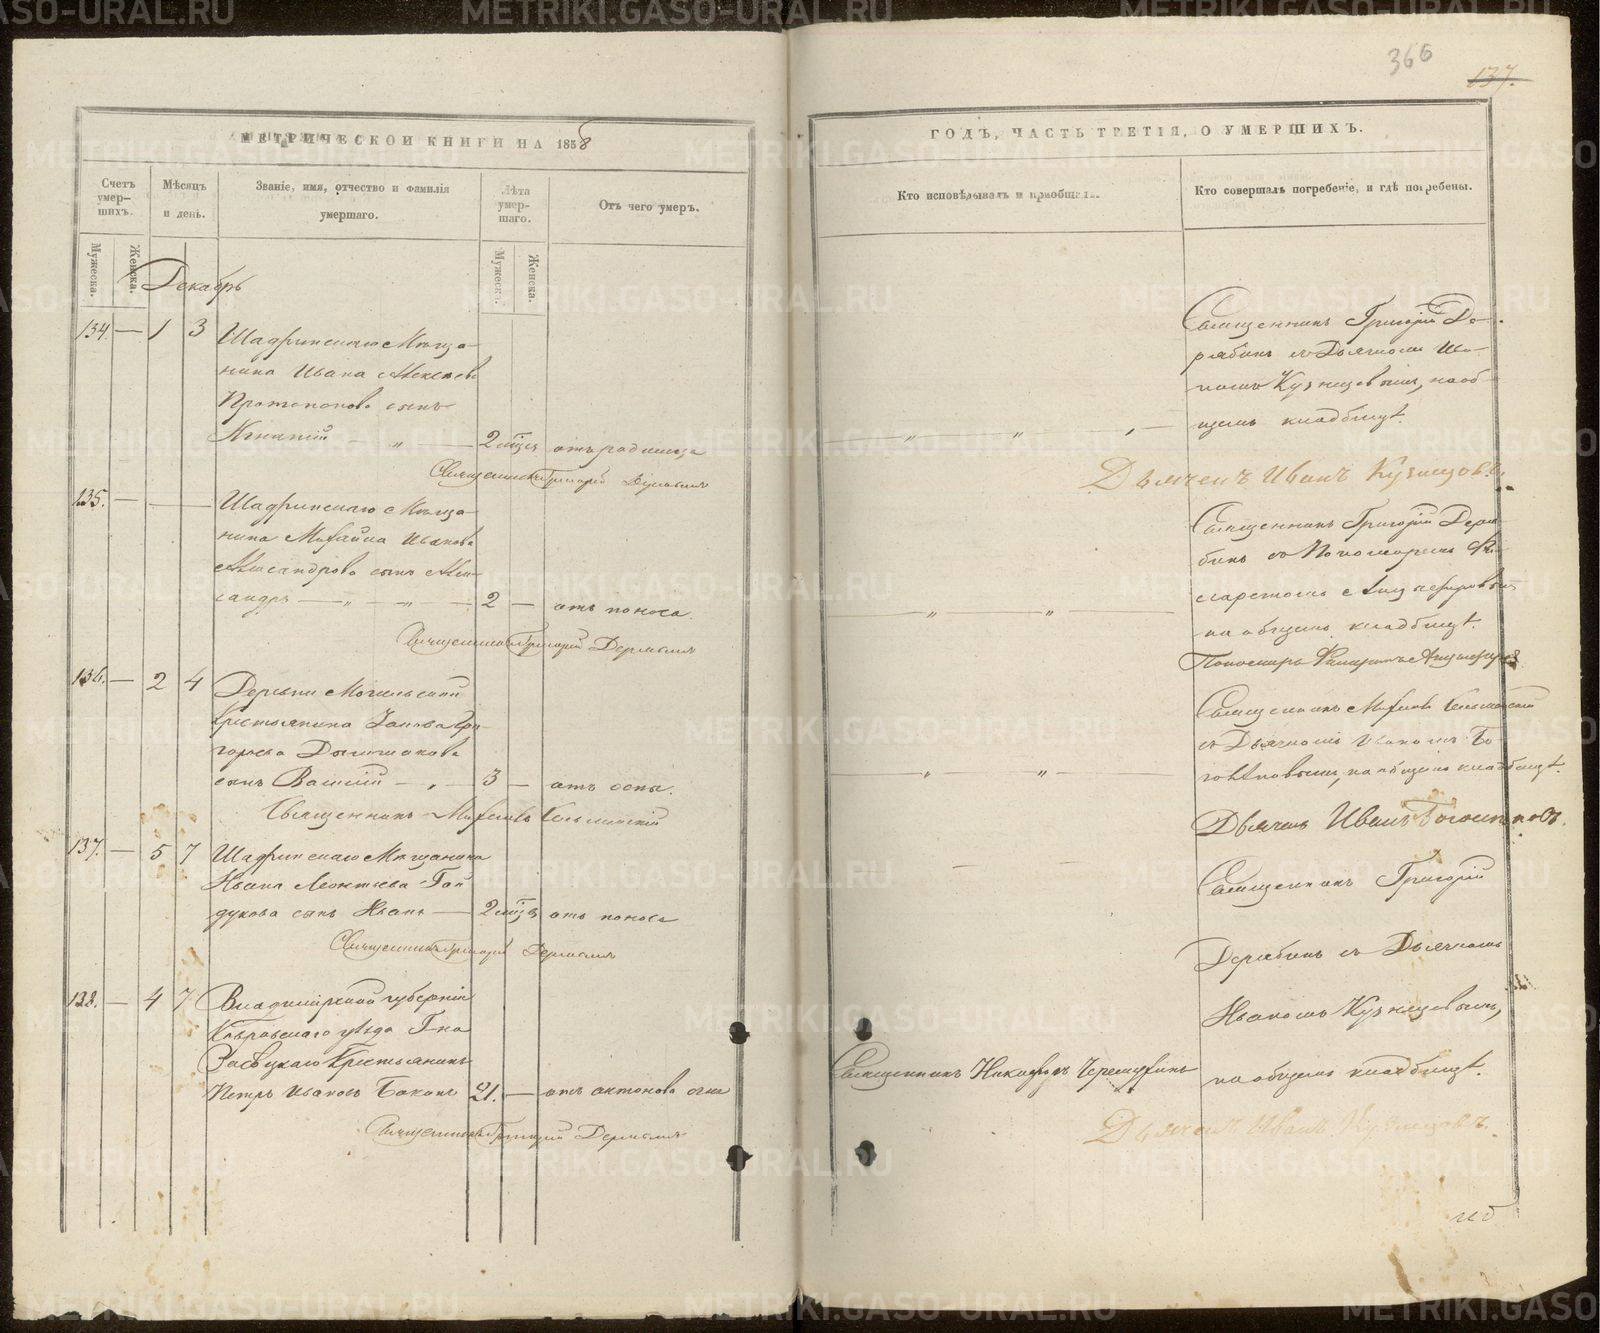 366
137.
МЕТРИЧЕСКОЙ КНИГИ НА 1858
ГОДЪ, ЧАСТЬ ТРЕТІЯ, О УМЕРШИХЪ.
Счетъ умер-шихъ.
Мужеска.
Женска.
Мѣсяцъ и день.
Званіе, имя, отчество и фамилія умершаго.
Лѣта умер-шаго.
Мужеска.
Женска.
Отъ чего умеръ.
Кто исповѣдывалъ и пріобщалъ.
Кто совершалъ погребеніе, и гдѣ погребены.
Декабрь
134. — 1 3
Шадринскаго Мѣща-
нина Ивана Алексѣева
Протопопова сынъ
Игнатій — „ — 2 мѣсѣ отъ родимца
Священникъ Григорій
Священникъ Григорій Де-
рябинъ съ Дьячкомъ Ива-
номъ Кузнецовымъ, на об-
щемъ кладбищѣ.
Дьячекъ Иванъ Кузнецовъ.
135. —
Шадринскаго Мѣща-
нина Михайла Иванова
Александрова сынъ Алек-
сандръ — „ — „ — 2 — отъ поноса.
Священникъ Григорій Дерябинъ
Священникъ Григорій Деря-
бинъ съ Пономаремъ Фи-
ларетомъ
на общемъ кладбищѣ.
Пономарь Филаретъ
136. — 2 4
Деревни Могильской
Крестьянина Григорьева
сынъ Василій — „ — 3 — отъ оспы.
Священникъ Михаилъ
Священникъ Михаилъ
съ Дьячкомъ Иваномъ Бо-
голѣповымъ, на общемъ кладбищѣ.
Дьячекъ Иванъ Боголѣповъ.
137. — 5 7
Шадринскаго Мѣщанина
Ивана Леонтьева Гай-
дукова сынъ Иванъ — 2 мѣсѣ отъ поноса
Священникъ Григорій Дерябинъ
Священникъ Григорій
Дерябинъ съ Дьячкомъ
Иваномъ Кузнецовымъ,
на общемъ кладбищѣ.
138. — 4 7
Владимірской губерніи
Ковровскаго уѣзда Г-на
Крестьянинъ
Петръ Ивановъ 21. — отъ антонова огня
Священникъ Григорій Дерябинъ
Священникъ Никифоръ
Дьячекъ Иванъ Кузнецовъ.
METRIKI.GASO-URAL.RU